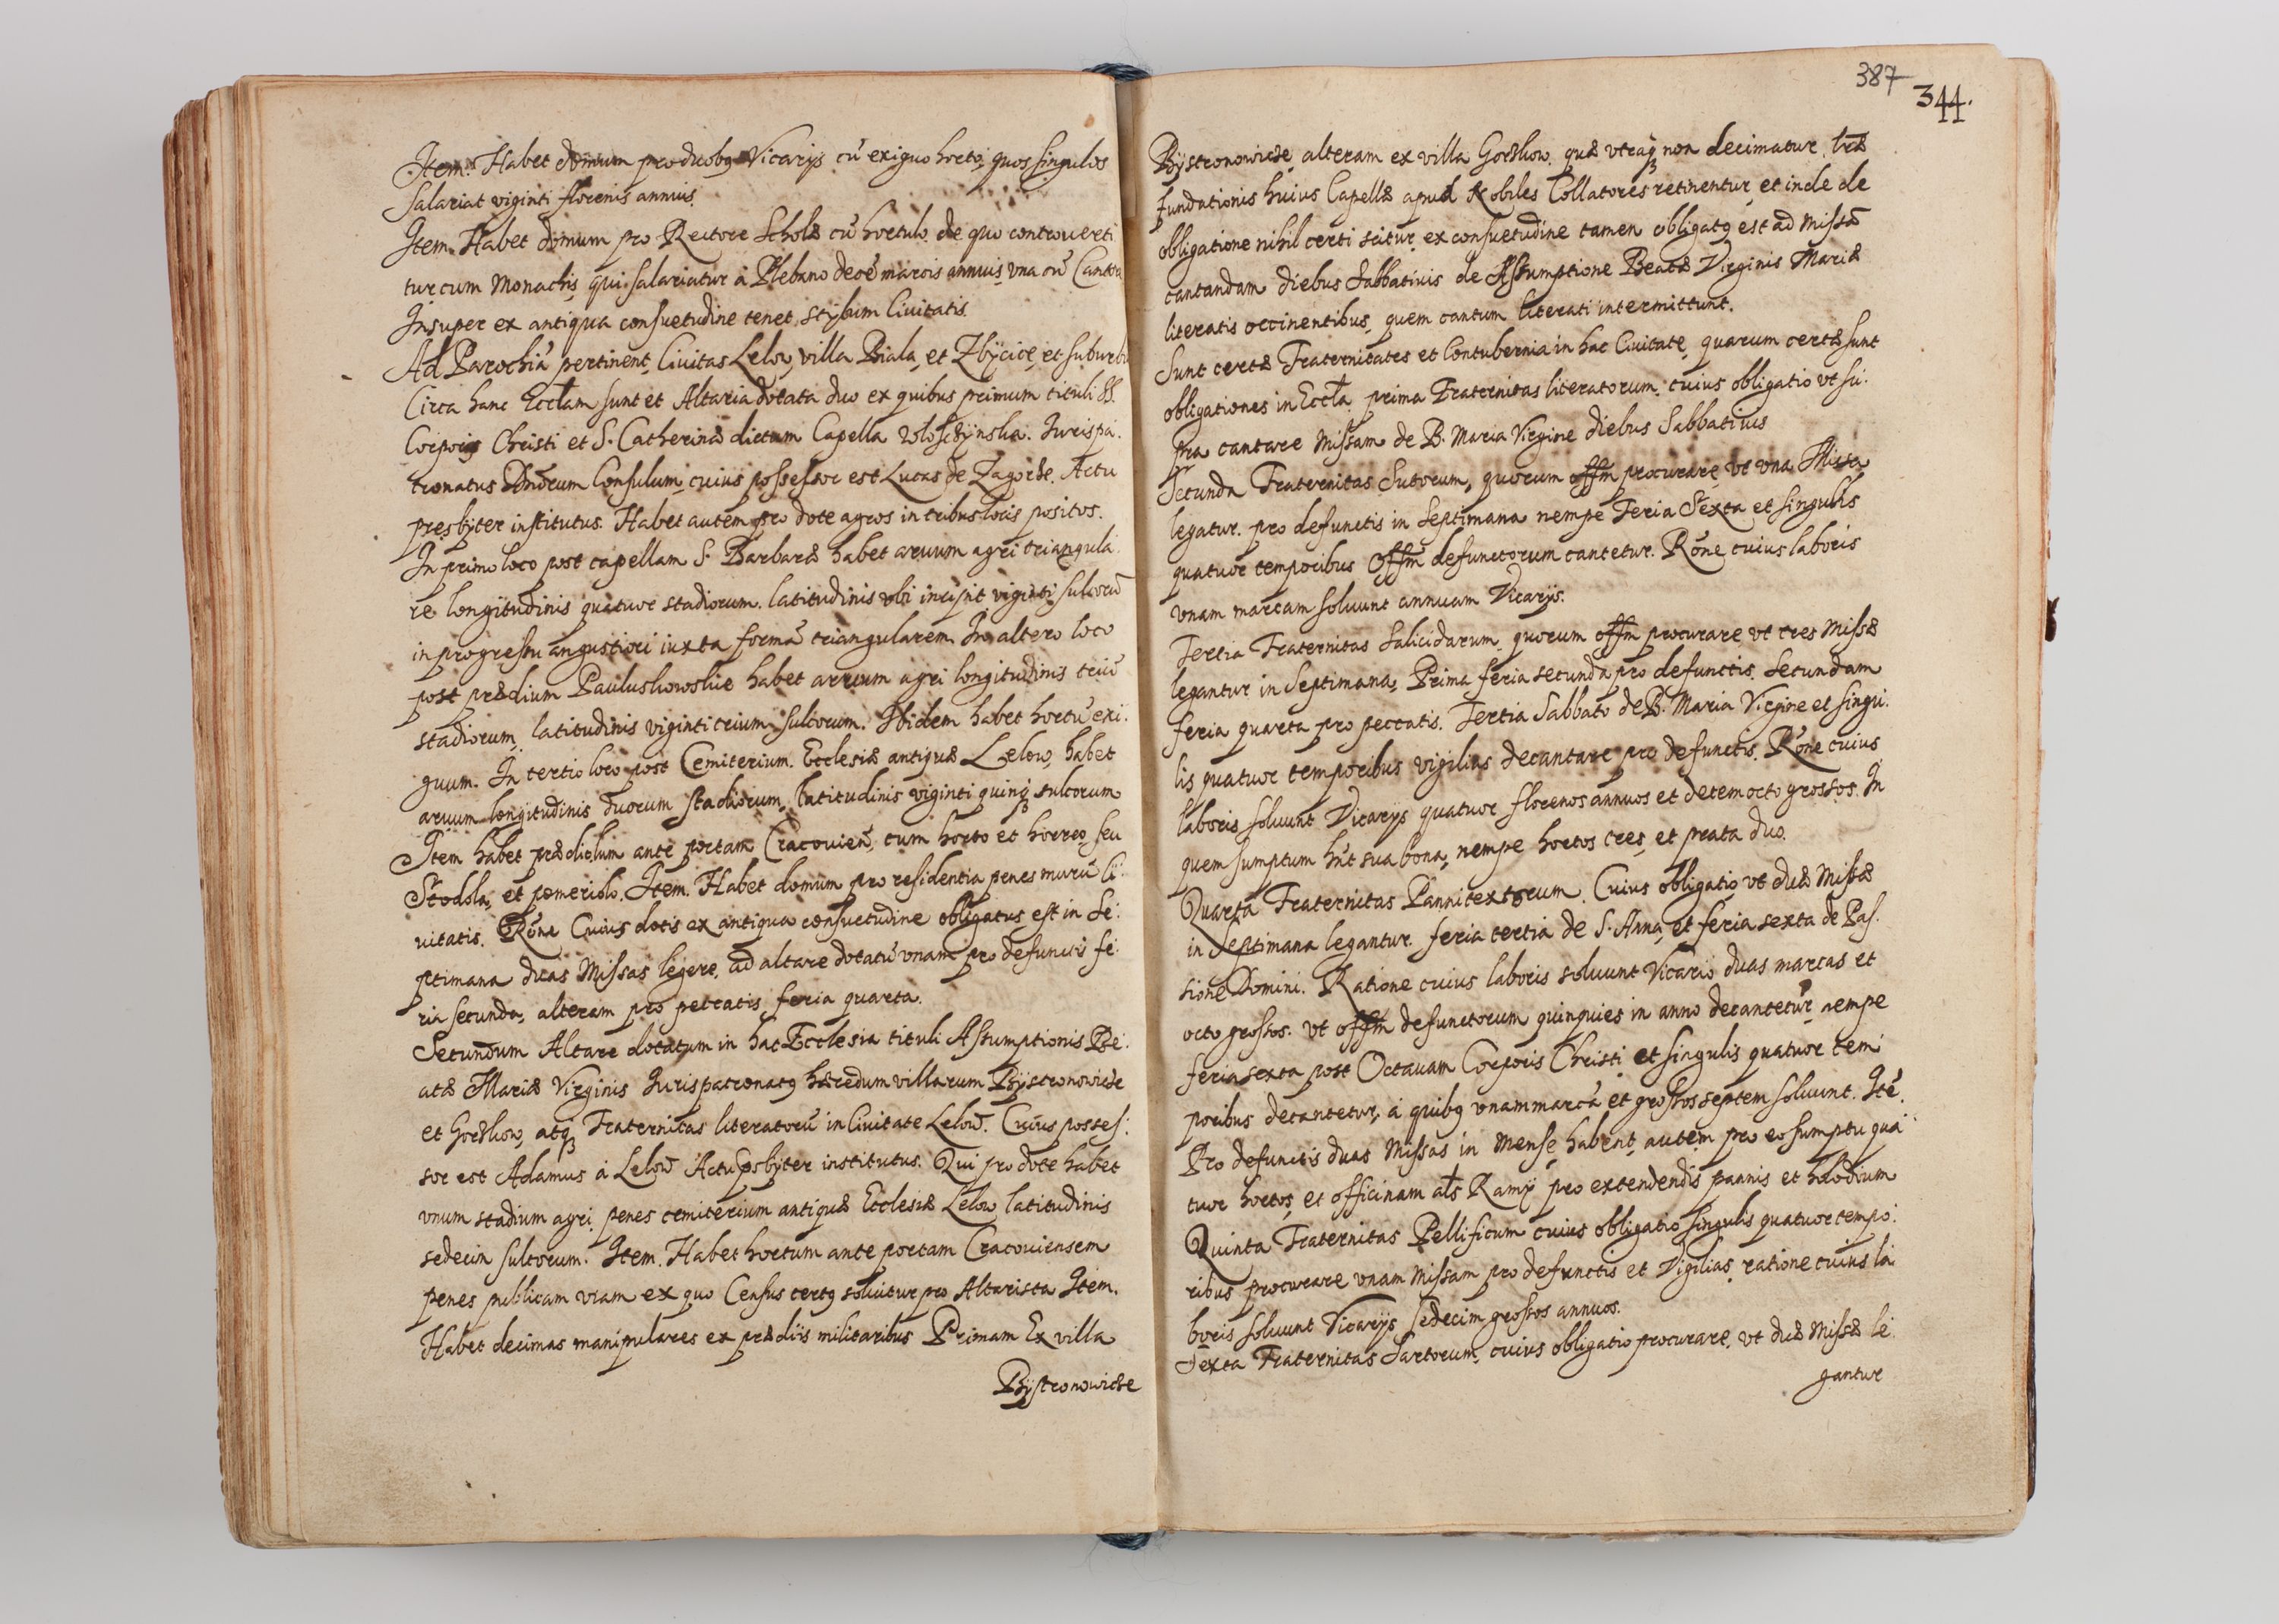 Item. Habet domum pro duobꝫ Vicarijs cũ exiguo horto, quos singulos
salariat viginti florenis annuis.
Item. Habet domum pro Rectore Scholæ cũ hortulo de quo controuerti
tur cum Monachis, qui salariatur à Plebano decẽ marcis annuis vna cũ Cantore
Insuper ex antiqua consuetudine tenet stÿbum Ciuitatis.
Ad Parochiã pertinent, Ciuitas Lelow, villa Biala, et Zbÿcice, et suburb
Circa hanc Eccłam sunt et Altaria dotata duo ex quibus primum tituli SS.
Corporis Christi et S. Catherinæ dictum Capella. Iurispa.
tronatus Dnorum Consulum, cuius possessor est Lucas de Zagorze. Actu
presbÿter institutus. Habet autem pro dote agros in tribus locis positos.
In primo loco post capellam S. Barbaræ habet aruum agri triangula.
re longitudinis quatuor stadiorum. latitudinis vbi incipit viginti sulcorũ
in progressu angustiori iuxta formã triangularem. In altero loco
post prædium Pauluskowskie habet aruum agri longitudinis triũ
stadiorum, latitudinis viginti trium sulcorum. Ibidem habet hortũ exi.
guum. In tertio loco post Cemiterium. Ecclesiæ antiquæ Lelow, habet
aruum longitudinis duorum stadiorum, latitudinis viginti quinqꝫ sulcorum
Item habet prædiolum ante portam Cracovień, cum horto et horreo, seu
Stodola, et pomeriolo. Item. Habet domum pro residentia penes murũ Ci.
uitatis. Rõne Cuius dotis ex antiqua consuetudine obligatus est in Se.
ptimana duas Missas legere, ad altare dotatũ vnam pro defunctis fe.
ria secunda, alteram pro peccatis feria quarta.
Secundum Altare dotatum in hac Ecclesia tituli Assumptionis Be.
atæ Mariæ Virginis Iurispatronatꝫ hæredum villarum Bÿstronowicze
et Gorzkow, atqꝫ Fraternitas literatorũ in Ciuitate Lelow. Cuius posses.
sor est Adamus à Lelow Actu psbÿter institutus. Qui pro dote habet
vnum stadium agri penes cemiterium antiquæ Ecclesiæ Lelow latitudinis
sedecim sulcorum. Item. Habet hortum ante portam Cracouiensem
penes publicam viam ex quo Census certꝫ soluitur pro Altarista Item.
Habet decimas manipulares ex prædijs militaribus Primam Ex villa
Bÿstronowicze
387
344.
Bÿstronowicze, alteram ex villa Gorzkow. quæ vtraqꝫ non decimatur, lræ
fundationis huius Capellæ apud Nobiles Collatores retinentur, et inde de
obligatione nihil certi scitur, ex consuetudine tamen obligatꝫ est ad Missã
cantandam diebus Sabbatiuis de Assumptione Beatæ Virginis Mariæ
literatis occinentibus, quem cantum literati intermittunt.
Sunt certæ Fraternitates et Contubernia in hac Ciuitate, quarum certæ sunt
obligationes in Eccła. prima Fraternitas literatorum, cuius obligatio vt su.
pra cantare Missam de B. Maria Virgine diebus Sabbatiuis
Secunda Fraternitas Sutorum, quorum offm procurare, vt vna Missa
legatur. pro defunctis in Septimana nempe Feria Sexta et singulis
quatuor temporibus Offm defunctorum cantetur. Rõne cuius laboris
vnam marcam soluunt annuam Vicarijs.
Tertia Fraternitas Salicidarum, quorum offm procurare, vt tres Missæ
legantur in Septimana, Prima feria secunda pro defunctis. Secundam
feria quarta pro peccatis. Tertia Sabbato de B. Maria Virgine et singu.
lis quatuor temporibus vigilias decantare pro defunctis. Rõne cuius
laboris soluunt Vicarijs quatuor florenos annuos et decem octo grossos. In
quem sumptum hñt sua bona, nempe hortos tres, et prata duo.
Quarta Fraternitas Pannitextorum. Cuius obligatio vt duæ Missæ
in Septimana legantur. feria tertia de S. Anna, et feria sexta de Pas.
sione Domini. Ratione cuius laboris soluunt Vicarijs duas marcas et
octo grossos. vt offm defunctorum quinquies in anno decantetur, nempe
feria sexta post Octauam Corporis Christi et singulis quatuor tem.
poribus decantetur, à quibꝫ vnam marcã et grossos septem soluunt. Itẽ.
Pro defunctis duas Missas in Mense, habent, autem pro eo sumptu qua.
tuor hortos, et officinam als Ramÿ pro extendendis pannis et
Quinta Fraternitas Pellificum cuius obligatio singulis quatuor tempo.
ribus procurare vnam Missam pro defunctis et Vigilias, ratione cuius la
boris soluunt Vicarijs sedecim grossos annuos.
Sexta Fraternitas Sartorum, cuius obligatio procurare, vt duæ Missæ le
gantur